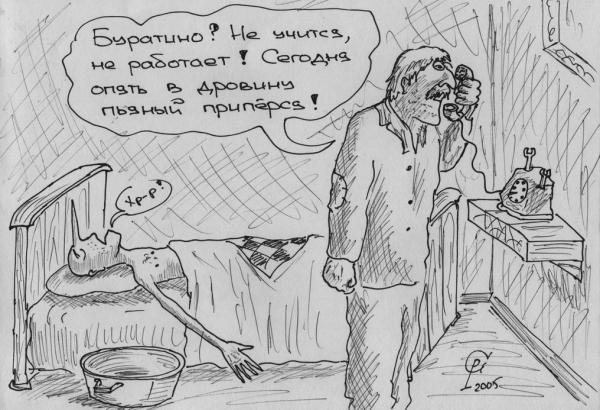 Буратино? Не учится,
не работает! Сегодня
опять в дровину
пьяный припёрся!
Хр-р!
2005